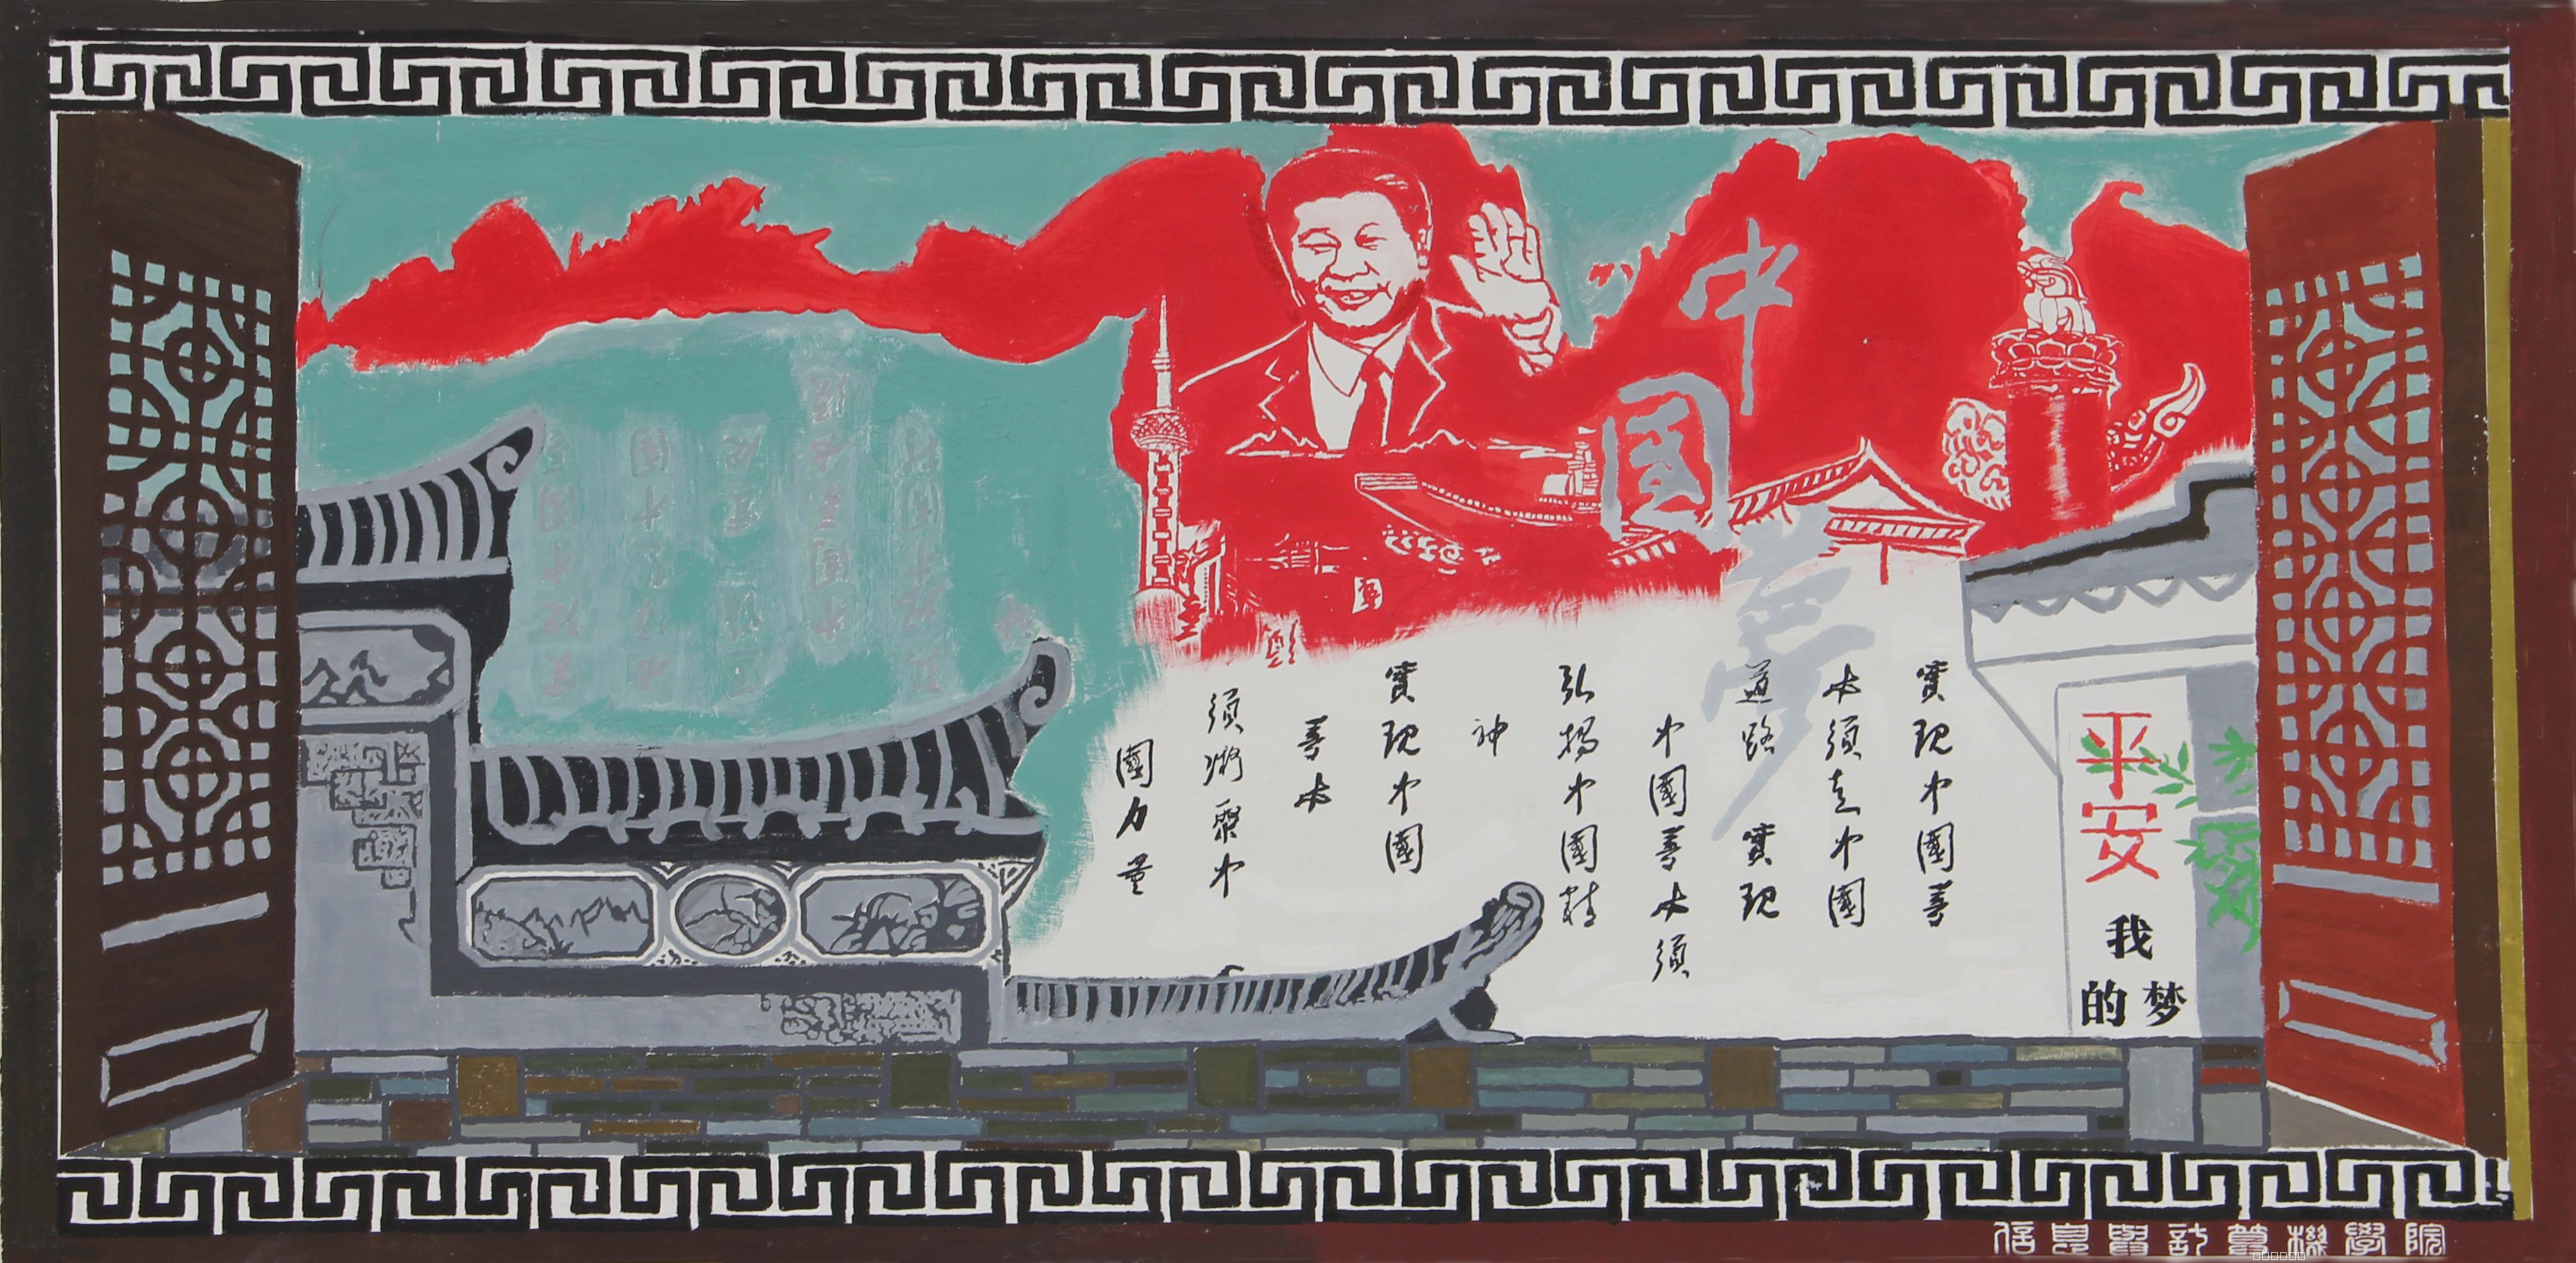 中國夢
實現中國夢
必須走中國
道路 實現
中國夢必須
弘揚中國精
神
實現中國
夢必
須凝聚中
國力量
平安
我的梦
信息與計算機學院